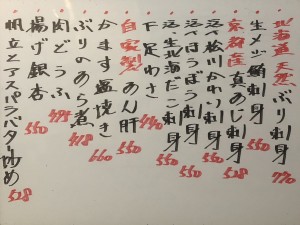 北海道天然 ぶり刺身 770
生メジ鮪刺身 550
京都産 真あじ刺身 528
活〆松川かわり刺身 550
活〆ほうぼう刺身 550
活〆生北海だこ刺身 550
下足わさ 440
自家製 あん肝 550
かます塩焼き 660
ぶりのあら煮 418
肉どうふ 495
揚げ銀杏 550
帆立とアスパラバター炒め 528